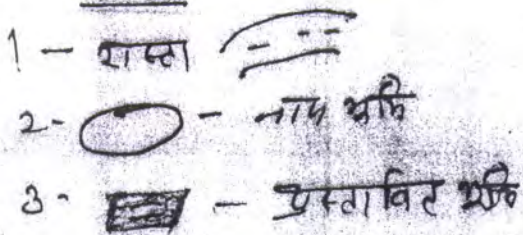 1 - रास्ता
2 - - नाप भूमि
3 - - प्रस्तावित भूमि